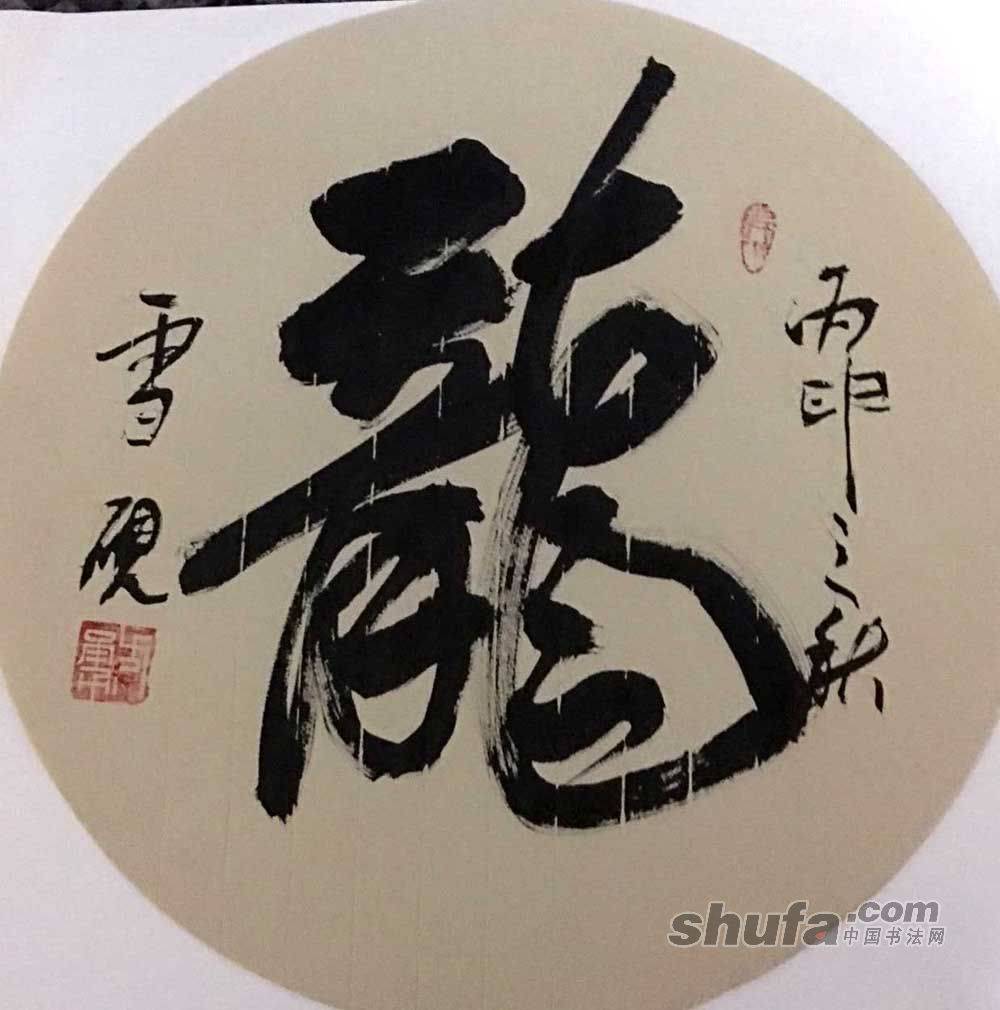 丙申之秋
龍
雪硯
shufa.com
中国书法网